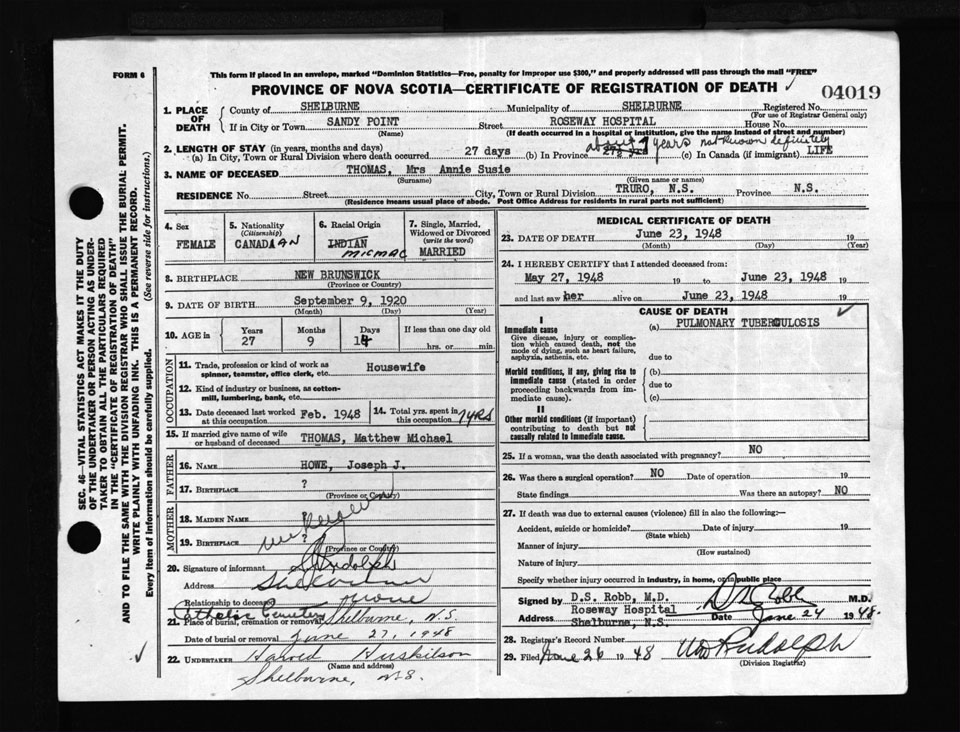 FORM 6
This form if placed in an envelope, marked "Dominion Statistics—Free, penalty for improper use $300," and properly addressed will pass through the mail "FREE"
PROVINCE OF NOVA SCOTIA—CERTIFICATE OF REGISTRATION OF DEATH
04019
1. PLACE OF DEATH
County of SHELBURNE Municipality of SHELBURNE Registered No.
(For use of Registrar General only)
If in City or Town SANDY POINT Street ROSEWAY HOSPITAL House No.
(Name) (If death occurred in a hospital or institution, give the name instead of street and number)
2. LENGTH OF STAY (in years, months and days) about 7 years not known definitely
(a) In City, Town or Rural Division where death occurred 27 days (b) In Province (c) In Canada (if immigrant) LIFE
3. NAME OF DECEASED THOMAS, Mrs Annie Susie
(Surname) (Given name or names)
RESIDENCE No. Street City, Town or Rural Division TRURO, N.S. Province N.S.
(Residence means usual place of abode. Post Office Address for residents in rural parts not sufficient)
4. Sex
FEMALE
5. Nationality
(Citizenship)
CANADIAN
6. Racial Origin
INDIAN
MICMAC
7. Single, Married, Widowed or Divorced
(write the word)
MARRIED
8. BIRTHPLACE NEW BRUNSWICK
(Province or Country)
9. DATE OF BIRTH September 9, 1920
(Month) (Day) (Year)
10. AGE in Years Months Days If less than one day old
27 9 14 hrs. or min.
OCCUPATION
11. Trade, profession or kind of work as Housewife
spinner, teamster, office clerk, etc.
12. Kind of industry or business, as cotton-
mill, lumbering, bank, etc.
13. Date deceased last worked at this occupation Feb. 1948
14. Total yrs. spent in this occupation 7 YRS
15. If married give name of wife or husband of deceased THOMAS, Matthew Michael
FATHER
16. NAME HOWE, Joseph J.
17. BIRTHPLACE ?
(Province or Country)
MOTHER
18. MAIDEN NAME
19. BIRTHPLACE ?
(Province or Country)
20. Signature of informant Rudolph
Address Shelburne
Relationship to deceased none
Catholic Cemetery
21. Place of burial, cremation or removal Shelburne, N.S.
Date of burial or removal June 27, 1948
22. UNDERTAKER Harold Huskilson
(Name and address)
Shelburne, N.S.
MEDICAL CERTIFICATE OF DEATH
23. DATE OF DEATH June 23, 1948 19
(Month) (Day) (Year)
24. I HEREBY CERTIFY that I attended deceased from:
May 27, 1948 19 to June 23, 1948 19
and last saw her alive on June 23, 1948 19
CAUSE OF DEATH
I
Immediate cause (a) PULMONARY TUBERCULOSIS
Give disease, injury or complication which caused death, not the mode of dying, such as heart failure, asphyxia, asthenia, etc.
due to
Morbid conditions, if any, giving rise to immediate cause (stated in order proceeding backwards from immediate cause).
(b)
due to
(c)
II
Other morbid conditions (if important) contributing to death but not causally related to immediate cause.
25. If a woman, was the death associated with pregnancy? NO
26. Was there a surgical operation? NO Date of operation 19
State findings Was there an autopsy? NO
27. If death was due to external causes (violence) fill in also the following:—
Accident, suicide or homicide? Date of injury 19
(State which)
Manner of injury
(How sustained)
Nature of injury
Specify whether injury occurred in industry, in home, or in public place
Signed by D.S. Robb, M.D. D S Robb M.D.
Roseway Hospital
Address Shelburne, N.S. Date June 24 1948.
28. Registrar's Record Number
29. Filed June 26 1948 Rudolph
(Division Registrar)
SEC. 46—VITAL STATISTICS ACT MAKES IT THE DUTY
OF THE UNDERTAKER OR PERSON ACTING AS UNDER-
TAKER TO OBTAIN ALL THE PARTICULARS REQUIRED
IN THE "CERTIFICATE OF REGISTRATION OF DEATH"
AND TO FILE THE SAME WITH THE DIVISION REGISTRAR WHO SHALL ISSUE THE BURIAL PERMIT.
WRITE PLAINLY WITH UNFADING INK. THIS IS A PERMANENT RECORD.
Every item of Information should be carefully supplied. (See reverse side for instructions.)